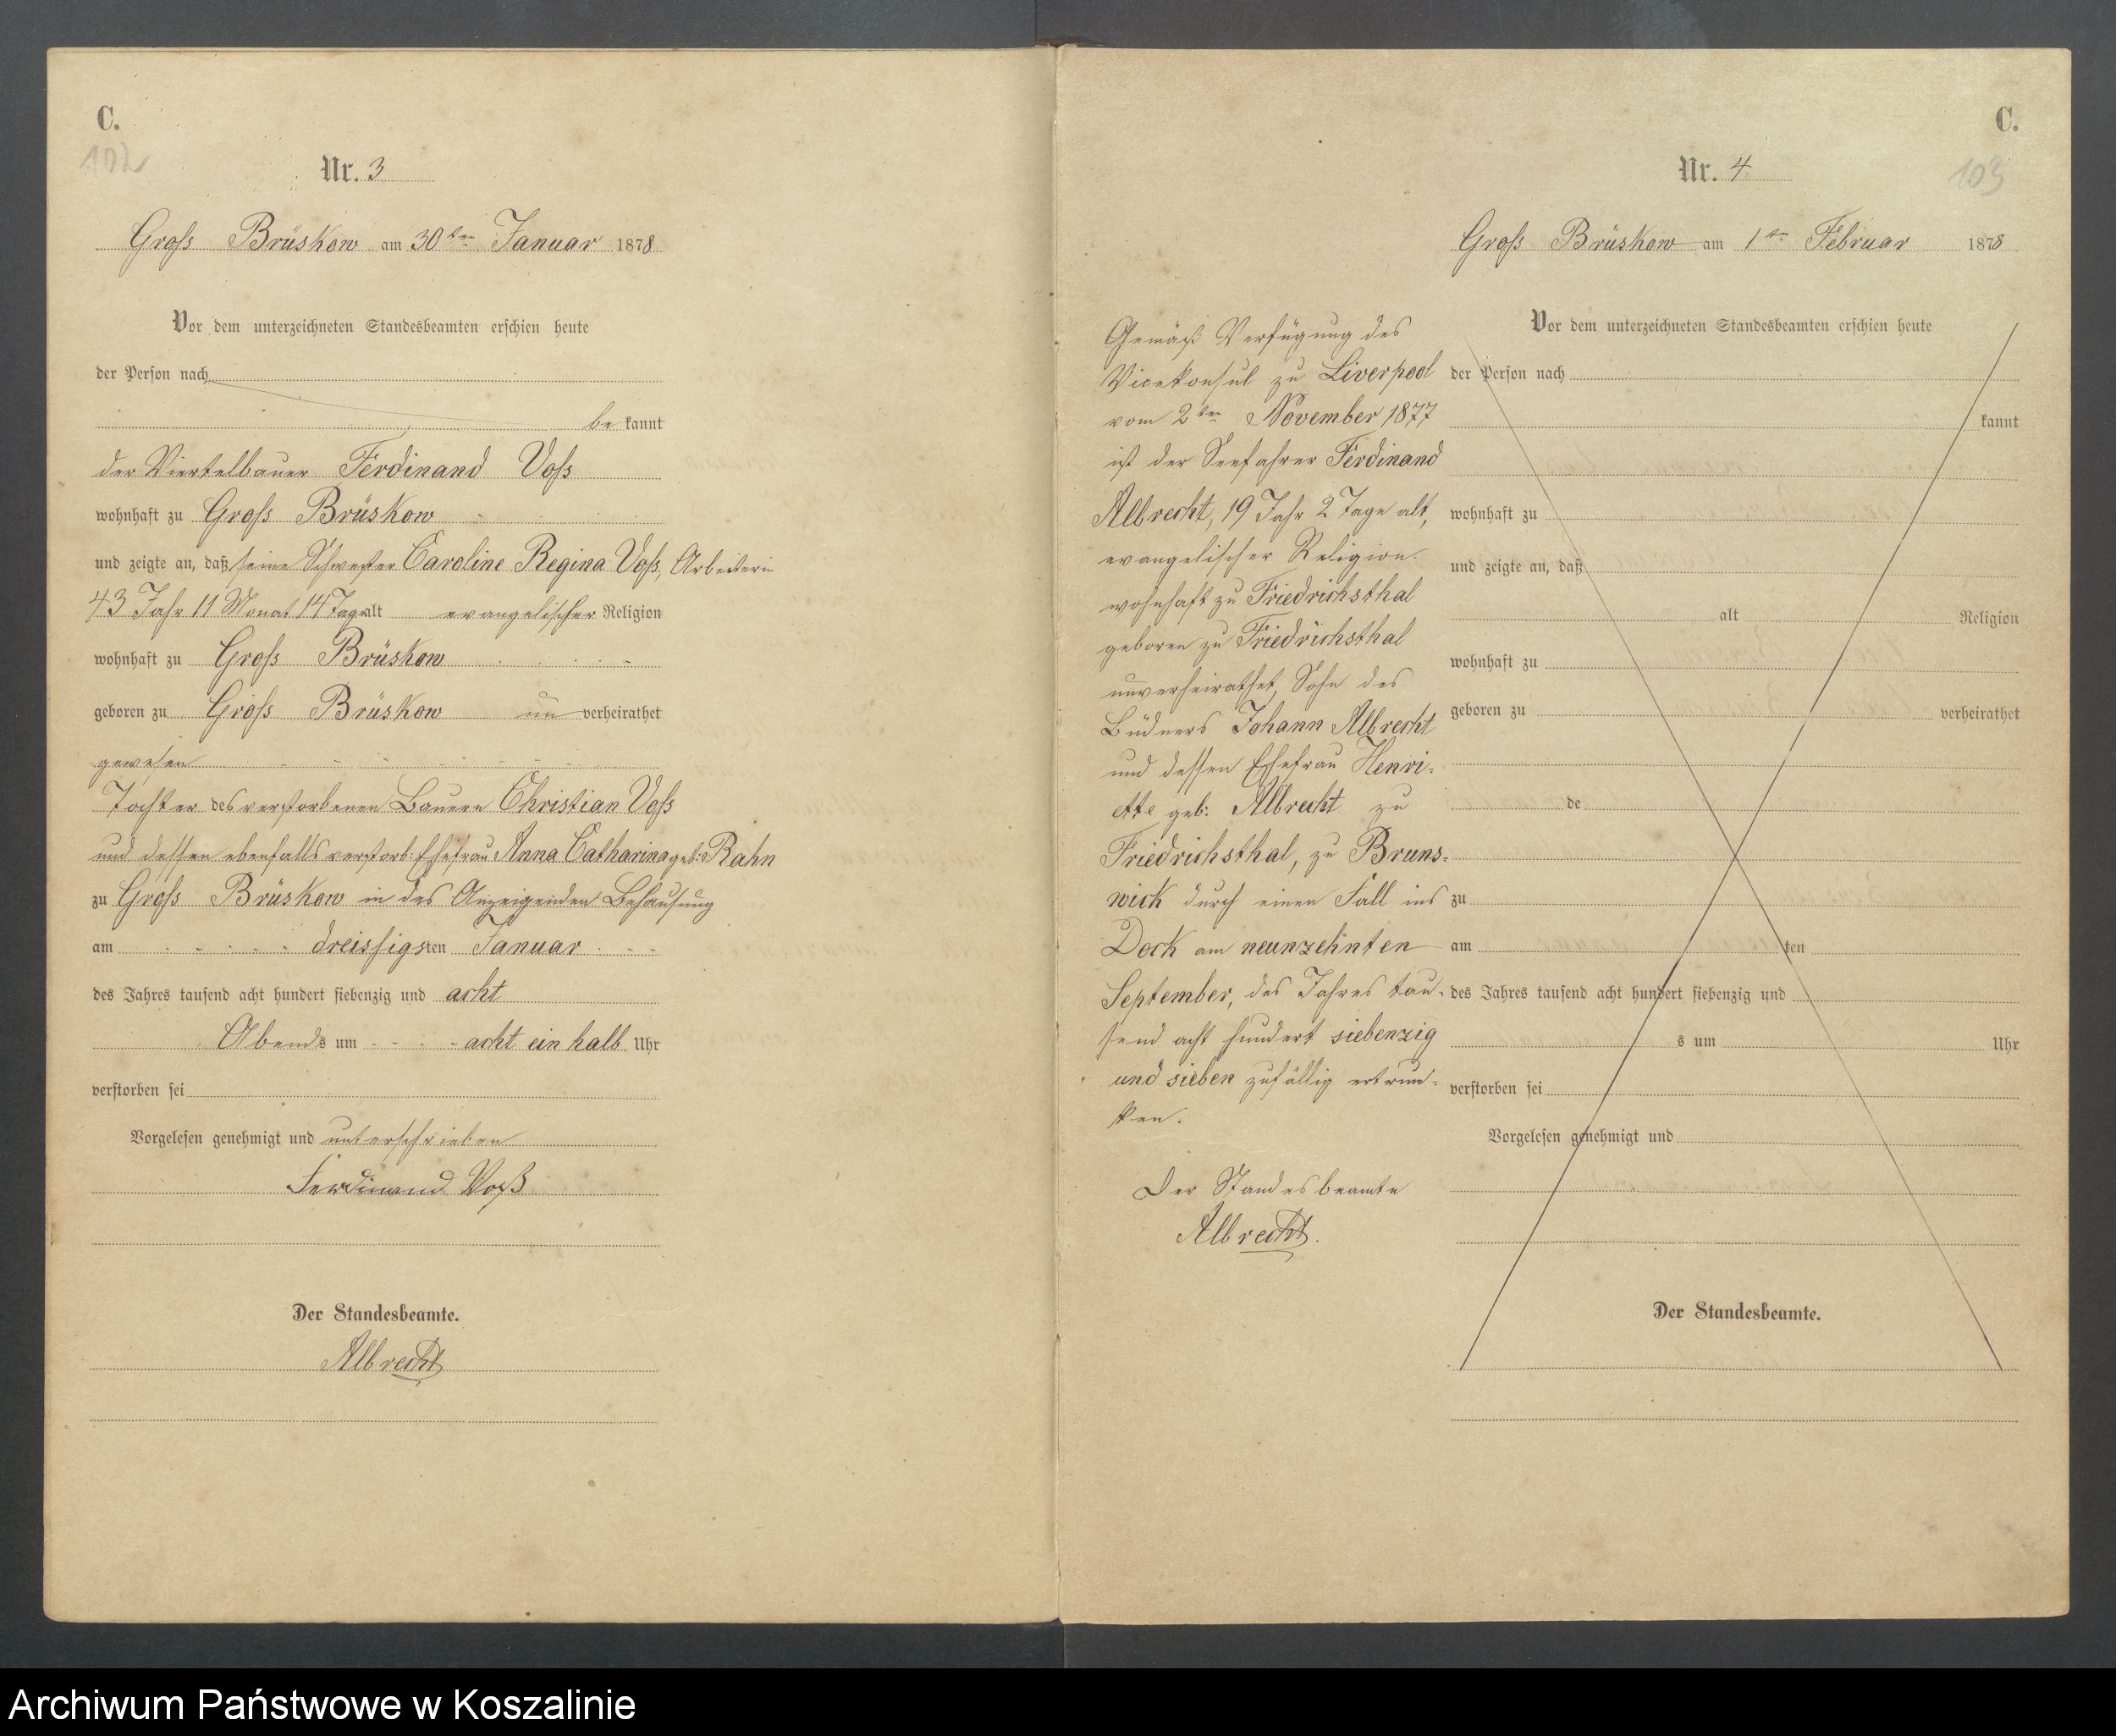 C.
102
Nr. 3
Groſs Brüskow am 30ten Januar 1878
Vor dem unterzeichneten Standesbeamten erschien heute
der Person nach
be kannt
der Viertelbauer Ferdinand Voſs
wohnhaft zu Groſs Brüskow
und zeigte an, daß seine Schwester Caroline Regina Voſs, Arbeiterin
43 Jahr 11 Monat 14 Tage alt evangelischer Religion
wohnhaft zu Groſs Brüskow
geboren zu Groſs Brüskow un verheirathet
gewesen
Tochter des verstorbenen Bauern Christian Voſs
und dessen ebenfalls verstorb: Ehefrau Anna Catharina geb: Rahn
zu Groſs Brüskow in des Anzeigenden Behausung
am dreissigsten Januar
des Jahres tausend acht hundert siebenzig und acht
Abends um acht ein halb Uhr
verstorben sei
Vorgelesen genehmigt und unterschrieben
Ferdinand Voß
Der Standesbeamte.
Albrecht
C.
103
Nr. 4
Groſs Brüskow am 1ten Februar 1878
Gemäß Verfügung des
Vicekonsul zu Liverpool
vom 2ten November 1877
ist der Seefahrer Ferdinand
Albrecht, 19 Jahr 2 Tage alt,
evangelischer Religion.
wohnhaft zu Friedrichsthal
geboren zu Friedrichsthal
unverheirathet, Sohn des
Büdners Johann Albrecht
und dessen Ehefrau Henri-
ette geb: Albrecht zu
Friedrichsthal, zu Bruns-
wick durch einen Fall ins
Dock am neunzehnten
September, des Jahres tau-
send acht hundert siebenzig
und sieben zufällig ertrun-
ken.
Der Standesbeamte
Albrecht.
Vor dem unterzeichneten Standesbeamten erschien heute
der Person nach
kannt
wohnhaft zu
und zeigte an, daß
alt Religion
wohnhaft zu
geboren zu verheirathet
de
zu
am ten
des Jahres tausend acht hundert siebenzig und
s um Uhr
verstorben sei
Vorgelesen genehmigt und
Der Standesbeamte.
Archiwum Państwowe w Koszalinie